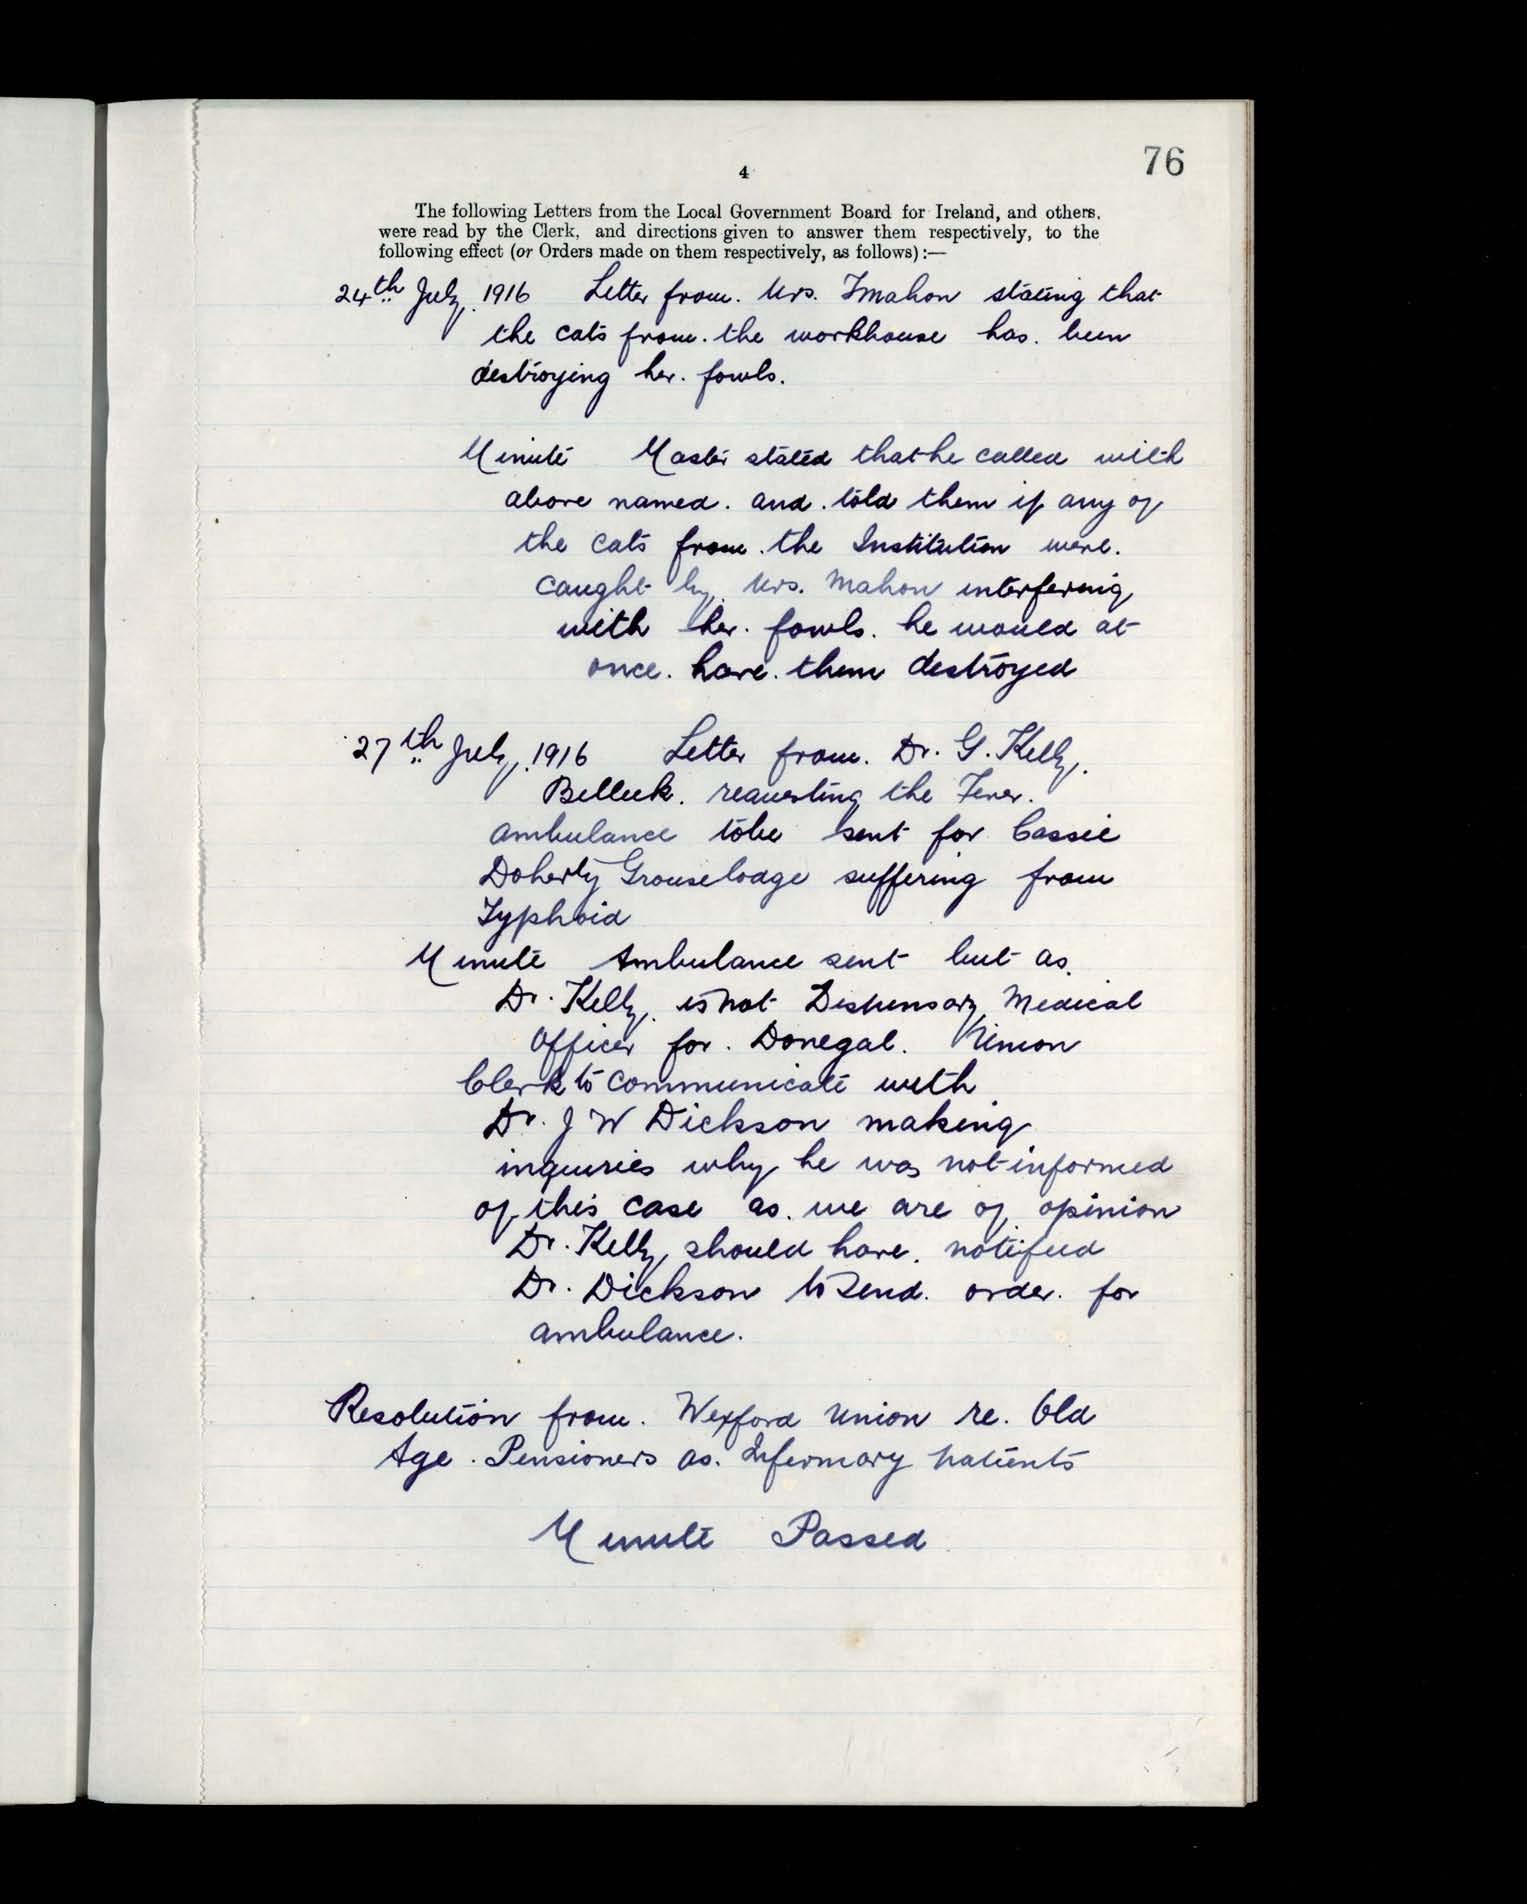 76
4
The following Letters from the Local Government Board for Ireland, and others,
were read by the Clerk, and directions given to answer them respectively, to the
following effect (or Orders made on them respectively, as follows):—
24th July. 1916 Letter from. Mrs. Mahon stating that
the cats from. the workhouse has. been
destroying her. fowls.
Minute Master stated that he called with
above named. and. told them if any of
the cats from. the Institution were.
caught by. Mrs. Mahon interfering
with her. fowls. he would at
once. have. them destroyed
27th July, 1916 Letter from. Dr. G. Kelly.
Belleek. requesting the Fever.
ambulance to be sent for Cassie
Doherty Grouselodge suffering from
Typhoid
Minute Ambulance sent but as.
Dr. Kelly. is not Dispensary Medical
Officer for. Donegal. Union
Clerk to communicate with
Dr. J W Dickson making
inquiries why he was not informed
of this case as. we are of opinion
Dr. Kelly should have. notified
Dr. Dickson to send. order. for
ambulance.
Resolution from. Wexford Union re. Old
Age. Pensioners as. Infirmary patients
Minute Passed